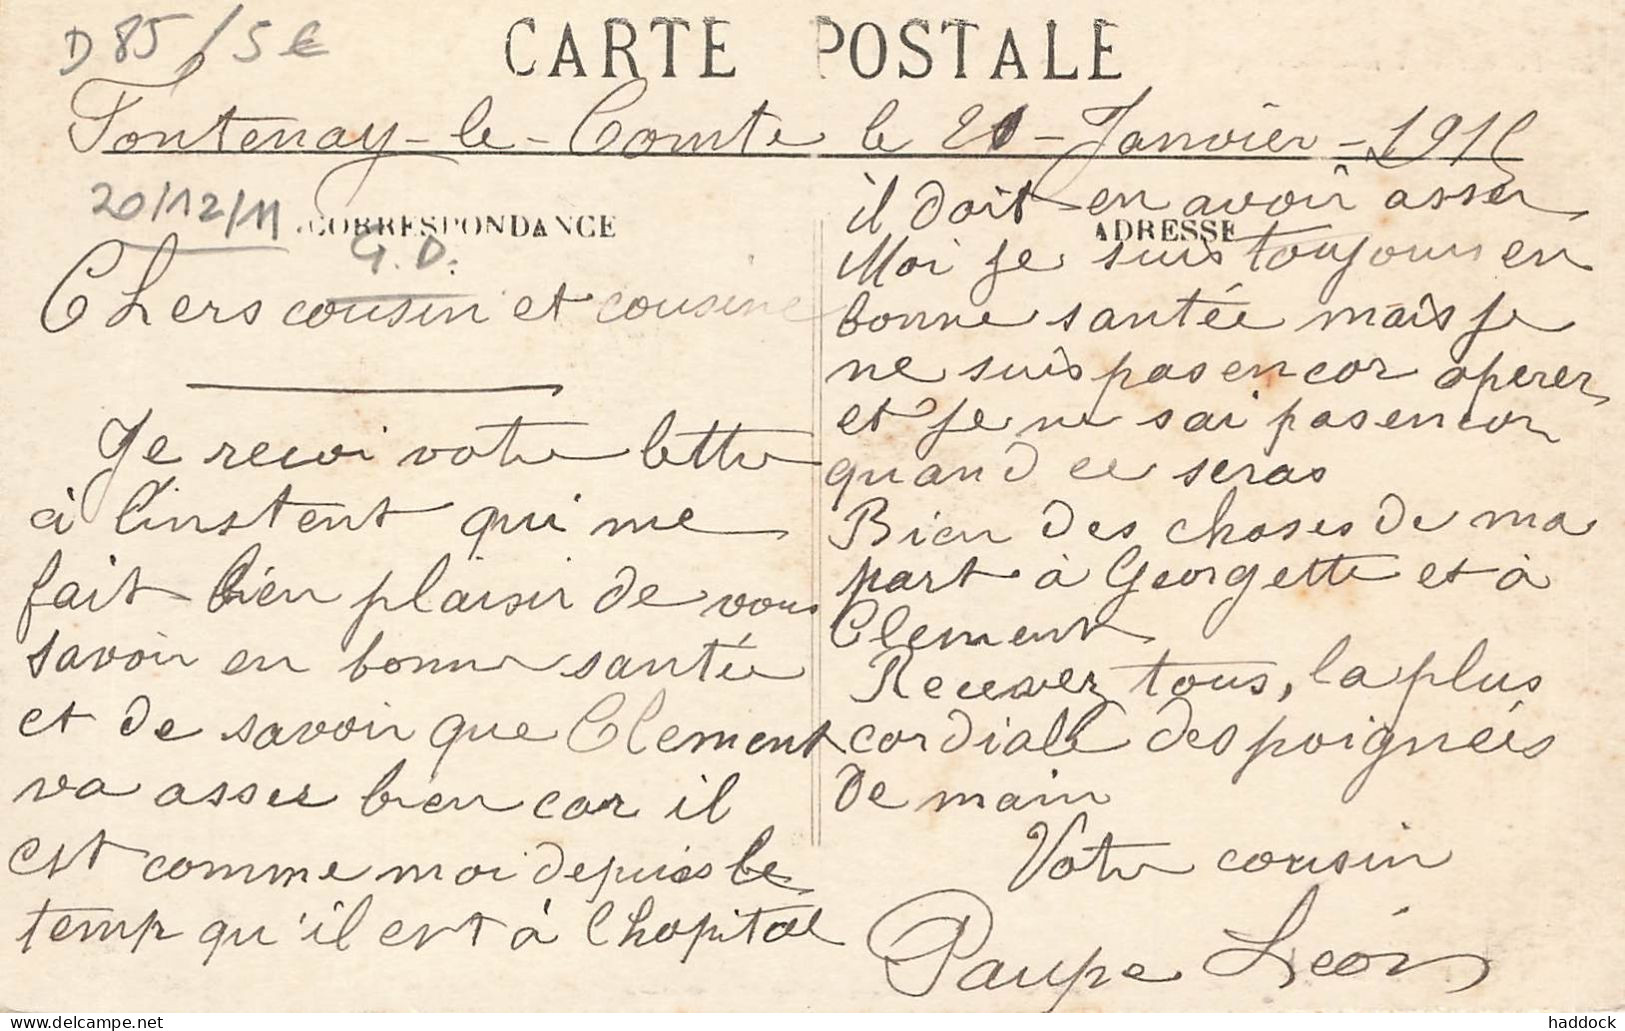 D 85 / 5 €
CARTE POSTALE
Fontenay-le-Comte le 21-Janvier-1915
20/12/11
CORRESPONDANCE
G.D.
Chers cousin et cousine
Je recoi votre lettre
à l'instent qui me
fait bien plaisir de vous
savoir en bonne santée
et de savoir que Clement
va asser bien car il
est comme moi depuis le
temp qu'il est à l'hopital
il doit en avoir asser
ADRESSE
Moi je suis toujours en
bonne santée mais je
ne suis pas encor operer,
et je ne sai pas encor
quand ce seras
Bien des choses de ma
part à Georgette et à
Clement
Recevez tous, la plus
cordiale des poignées
de main
Votre cousin
Paupe Léon
haddock
www.delcampe.net